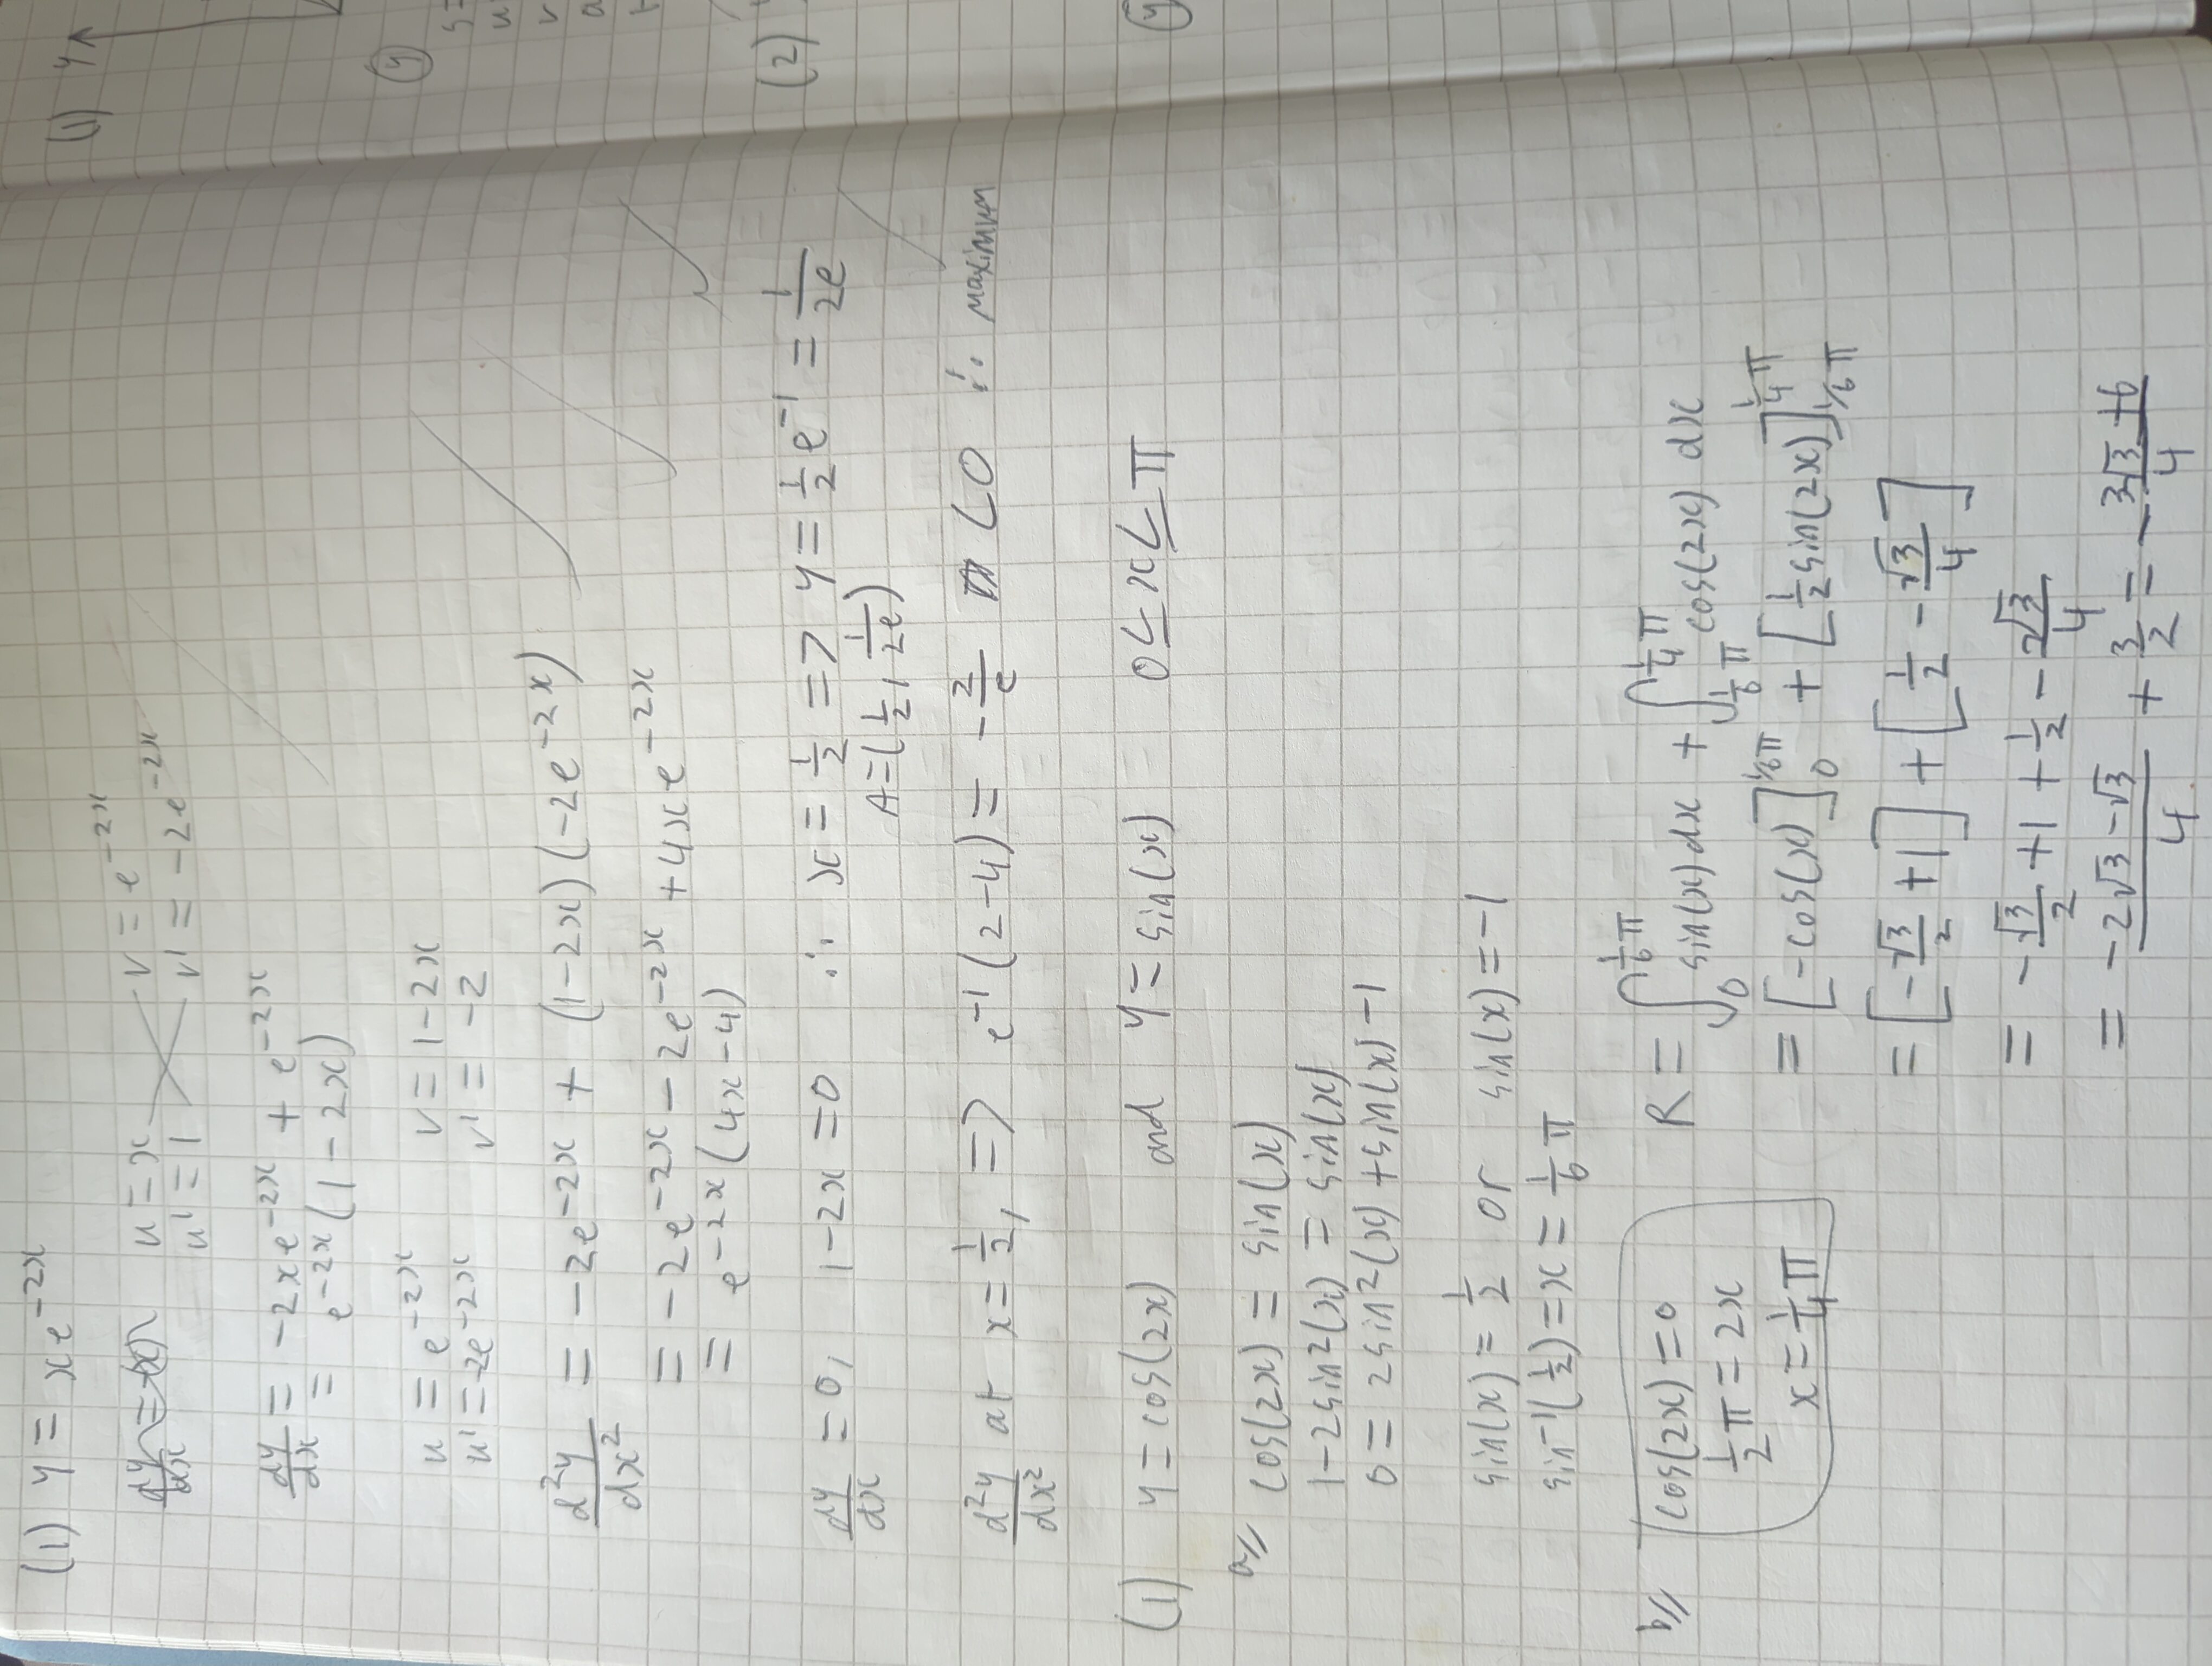 (1) y = xe^-2x
dy/dx = u = x v = e^-2x
u' = 1 v' = -2e^-2x
dy/dx = -2xe^-2x + e^-2x
= e^-2x(1 - 2x)
u = e^-2x v = 1-2x
u' = -2e^-2x v' = -2
d²y/dx² = -2e^-2x + (1-2x)(-2e^-2x)
= -2e^-2x - 2e^-2x + 4xe^-2x
= e^-2x(4x-4)
dy/dx = 0, 1-2x = 0 ∴ x = 1/2 => y = 1/2 e^-1 = 1/2e
A = (1/2, 1/2e)
d²y/dx² at x = 1/2, => e^-1(2-4) = -2/e <0 ∴ maximum
(1) y = cos(2x) and y = sin(x) 0≤x≤π
a// cos(2x) = sin(x)
1-2sin²(x) = sin(x)
0 = 2sin²(x)+sin(x)-1
sin(x) = 1/2 or sin(x) = -1
sin^-1(1/2) = x = 1/6 π
b// cos(2x) = 0 R = ∫_0^{1/6 π} sin(x)dx + ∫_{1/6 π}^{1/4 π} cos(2x) dx
1/2 π = 2x = [-cos(x)]_0^{1/6 π} + [1/2 sin(2x)]_{1/6 π}^{1/4 π}
x = 1/4 π
= [-√3/2 + 1] + [1/2 - √3/4]
= -√3/2 + 1 + 1/2 - √3/4
= -2√3-√3/4 + 3/2 = -3√3+6/4
(1) y
(y)
(2)
(y)